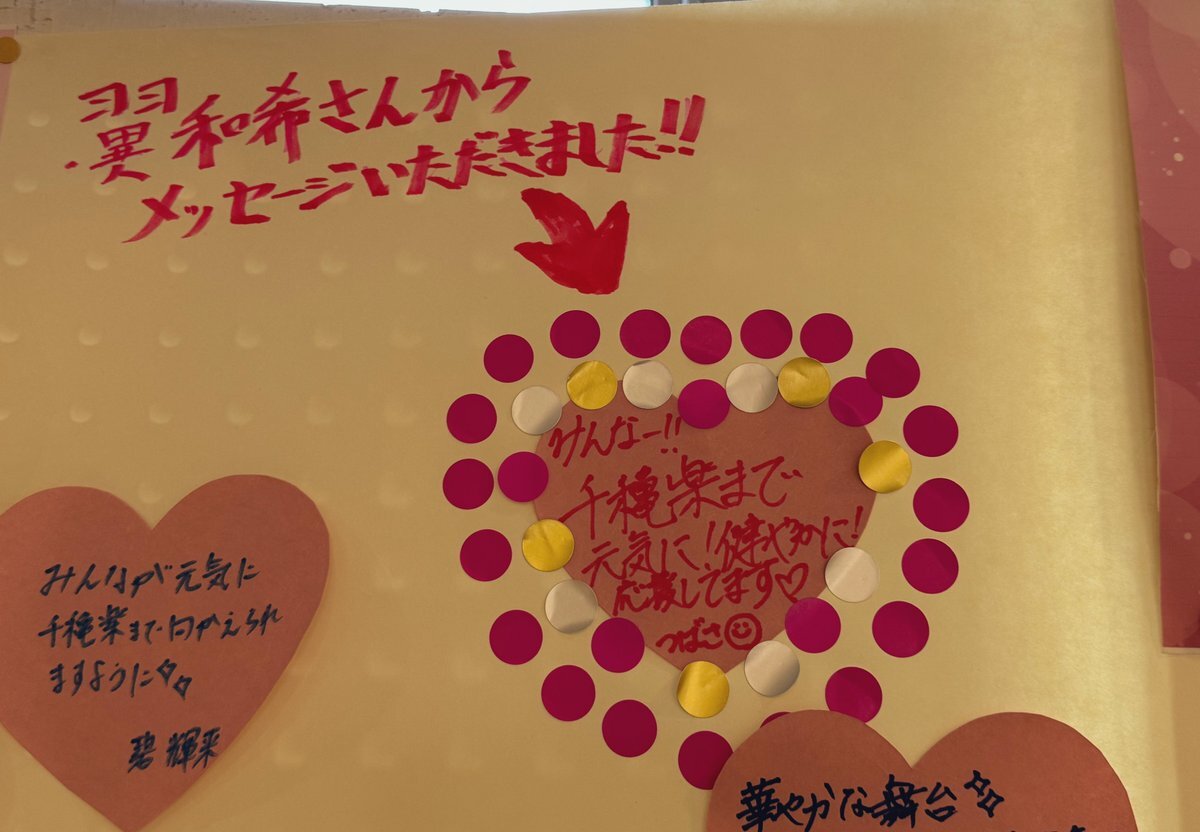 翼和希さんから
メッセージいただきました!!
みんなー!!
千穐楽まで
元気に!健やかに!
応援してます♡
つばさ☺
みんなが元気に
千穐楽まで向かえられ
ますように
碧 輝来
華やかな舞台